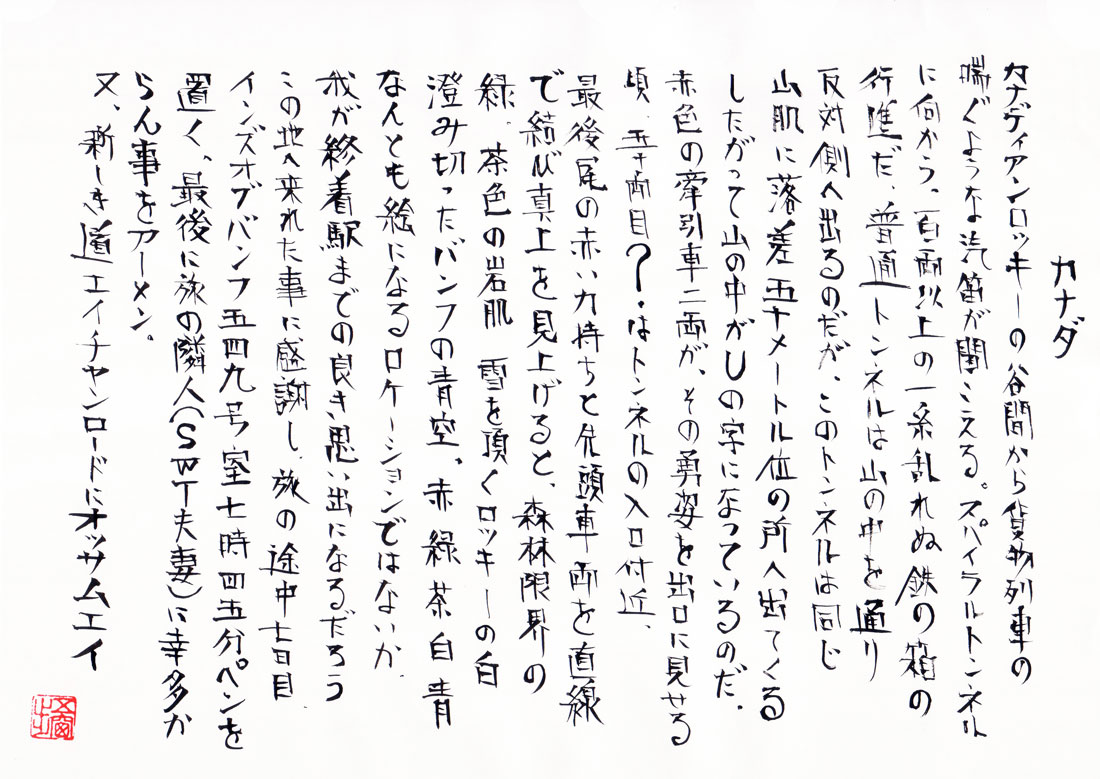 カナダ
カナディアンロッキーの谷間から貨物列車の
喘ぐような汽笛が聞こえる。スパイラルトンネル
に向かう。百両以上の一糸乱れぬ鉄の箱の
行進だ、普通トンネルは山の中を通り
反対側へ出るのだが、このトンネルは同じ
山肌に落差五十メートル位の所へ出てくる
したがって山の中がUの字になっているのだ。
赤色の牽引車二両が、その勇姿を出口に見せる
頃、五十両目?・はトンネルの入口付近、
最後尾の赤い力持ちと先頭車両を直線
で結び真上を見上げると、森林限界の
緑、茶色の岩肌 雪を頂くロッキーの白
澄み切ったバンフの青空。赤緑茶白青
なんとも絵になるロケーションではないか、
我が終着駅までの良き思い出になるだろう
この地へ来れた事に感謝し、旅の途中七日目
インズオブバンフ五四九号室七時四五分ペンを
置く、最後に旅の隣人(SWT夫妻)に幸多か
らん事をアーメン。
又、新しき道エイチャンロードにオッサムエイ